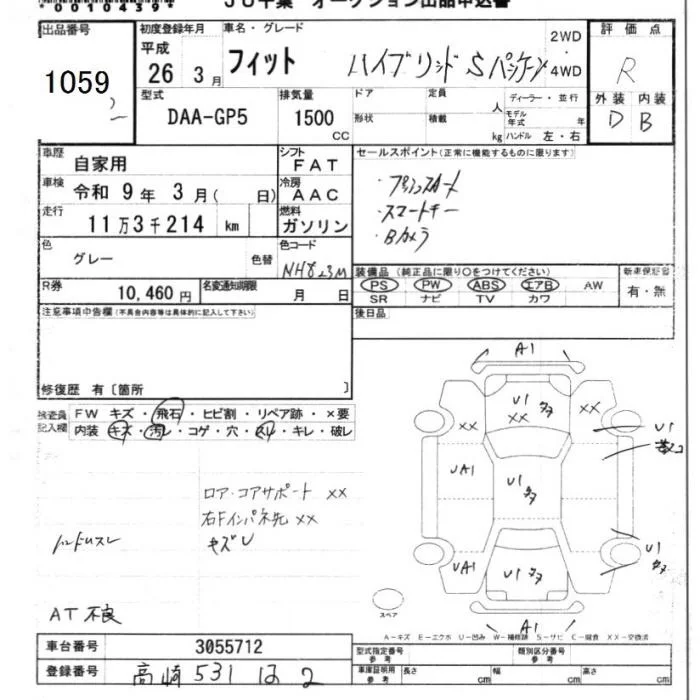 00104394
JU千葉 オークション出品申込書
出品番号
1059
初度登録年月
平成
26 年 3 月
車名・グレード
フィット ハイブリッド Sパッケージ
2WD
・
4WD
評価点
R
外装 内装
D B
型式
DAA-GP5
排気量
1500
CC
ドア
定員
人
形状
積載
kg
ディーラー・並行
モデル年式
年
ハンドル 左・右
車歴
自家用
シフト
FAT
セールスポイント(正常に機能するものに限ります)
車検
令和 9 年 3 月( 日)
冷房
AAC
・プッシュスタート
・スマートキー
・Bカメラ
走行
11万3千214 km
燃料
ガソリン
色
グレー
色替
色コード
NH823M
装備品 (純正品に限り○をつけてください)
PS PW ABS エアB AW
SR ナビ TV カワ
新車保証書
有・無
R券
10,460 円
名変通知期限
月 日
後日品
注意事項申告欄(不具合内容等は具体的に記入して下さい)
修復歴 有〔箇所 〕
検査員記入欄
FW キズ・飛石・ヒビ割・リペア跡・×要
内装・キズ・汚レ・コゲ・穴・スレ・キレ・破レ
A1
U1
××
××
××
U1
UA1
U1
ロア・コアサポート ××
右Fインパネ先 ××
キズU
ハンドルスレ
UA1
U1
U1
AT不良
スペア
A1
A-キズ E-エクボ U-凹み W-補修跡 S-サビ C-腐食 XX-交換済
車台番号
3055712
型式指定番号
参考
類別区分番号
参考
登録番号
高崎 531 は 2
車庫証明用
参考
長さ
cm
幅
cm
高さ
cm